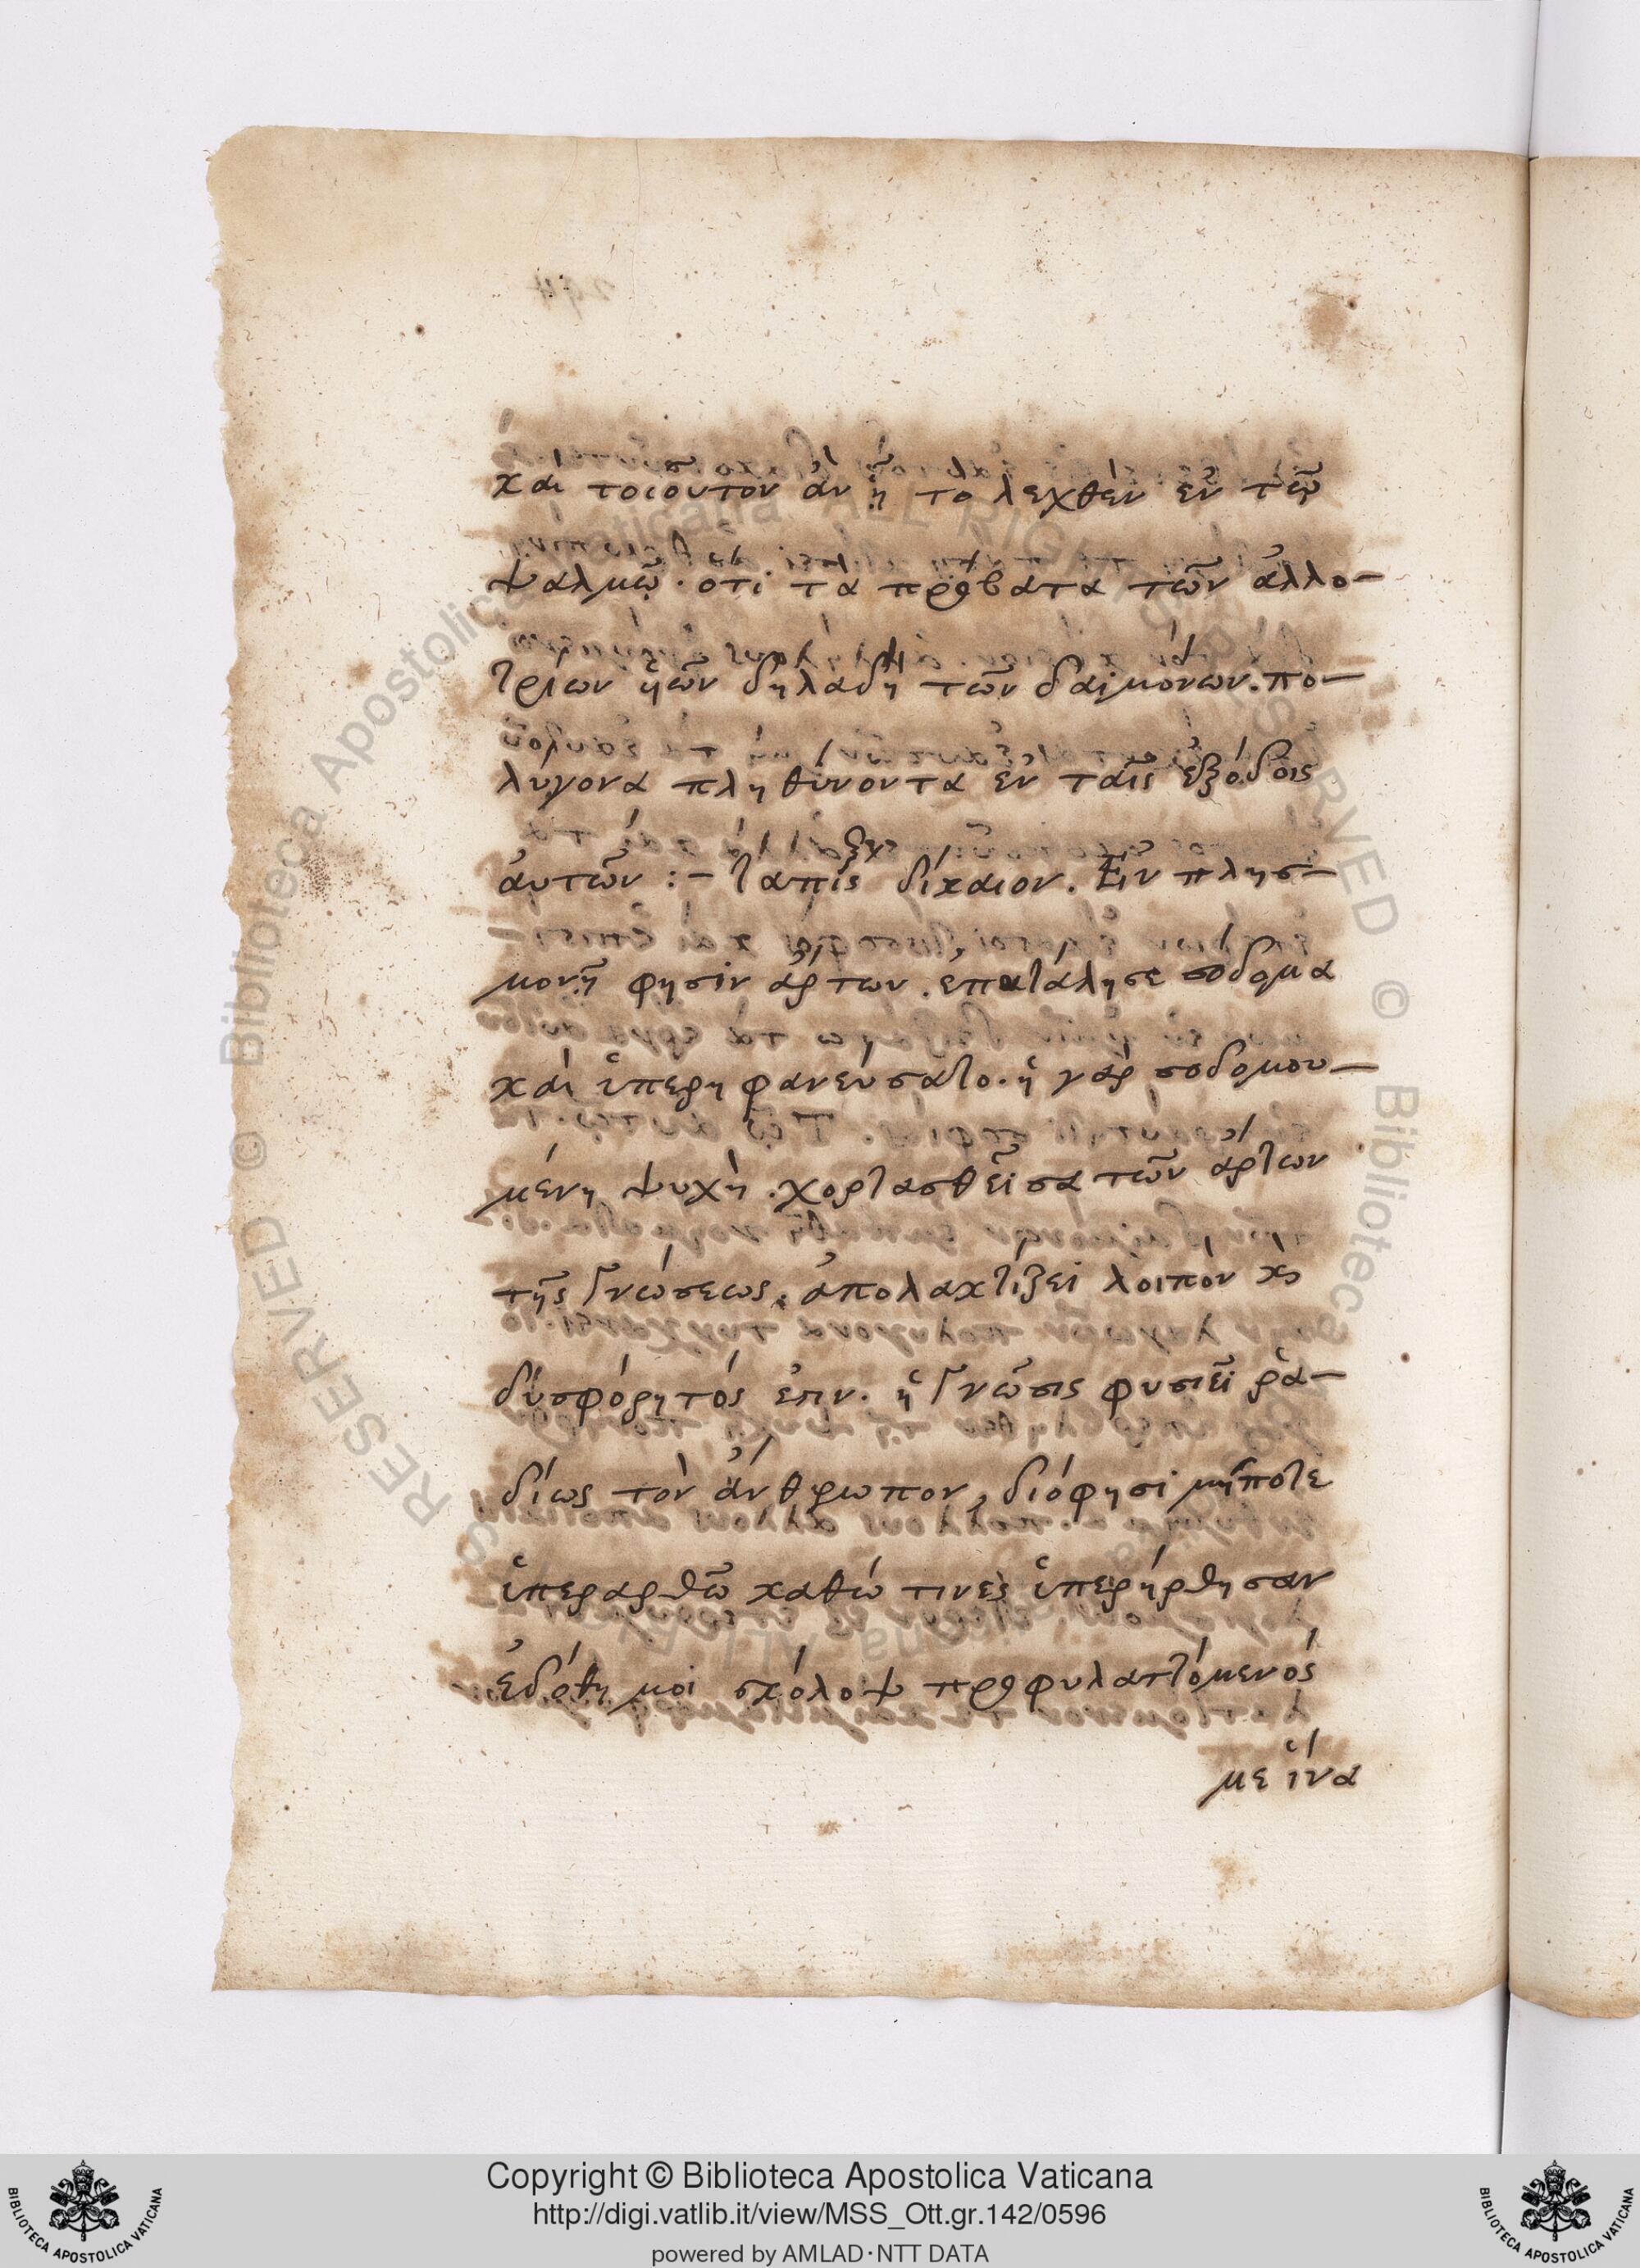 καὶ τοιοῦτον ἂν ῇ τὸ λεχθὲν ἐν τῶ
ψαλμῶ. ὅτι τὰ πρόβατα τῶν ἀλλο-
τρίων δηλαδὴ τῶν δαιμόνων. πο-
λυγονα πληθύνοντα ἐν ταῖς ἐξόδοις
ἀυτῶν :- δίκαιον. Ἐν πλησ-
μονῇ φησὶν ἄρτων. ἐπατάλησε σοδομα
καὶ ὑπερηφανεύσατο. ἡ γὰρ σοδομου-
μένη ψυχὴ. χορτασθεῖσα τῶν ἄρτων
τῆς γνώσεως. ἀπολακτίζει λοιπὸν κ
δύσφόρητός ἐστιν. ἡ γνῶσις φυσιεῖ ῥα-
δίως τὸν ἄνθρωπον, διόφησι μήποτε
ὑπεραρθῶ καθώ τινες ὑπερήρθησαν
ἐδόθη μοι σκόλοψ προφυλαττόμενός
με ἵνα
Copyright © Biblioteca Apostolica Vaticana
http://digi.vatlib.it/view/MSS_Ott.gr.142/0596
powered by AMLAD·NTT DATA
BIBLIOTECA APOSTOLICA VATICANA
BIBLIOTECA APOSTOLICA VATICANA